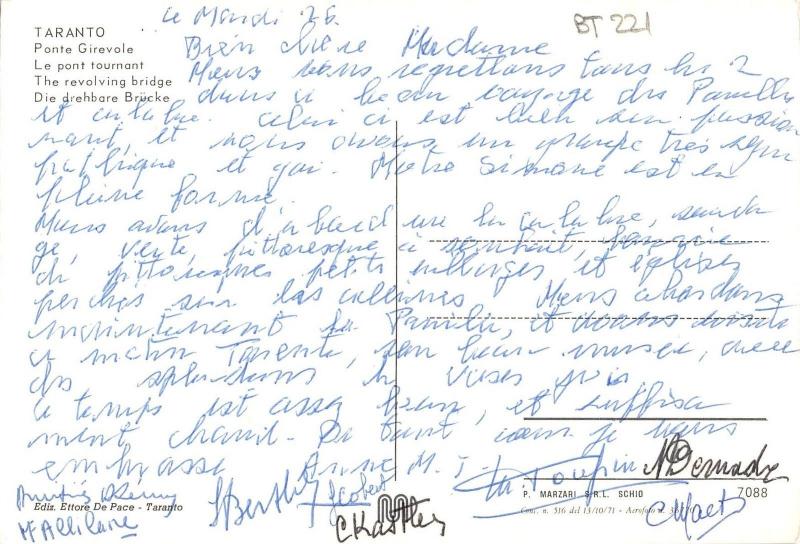 TARANTO
Ponte Girevole
Le pont tournant
The revolving bridge
Die drehbare Brücke
BT 221
Le Mardi 26
Bien chère Madame
Nous vous regrettons tous les 2
dans ce beau voyage des Pouilles
et Calabre. Celui ci est bien
nant, et nous avons un groupe très sym
pathique et gai. Notre Simone est en
pleine forme.
Nous avons d'abord vu la Calabre,
ge, verte, pittoresque à souhait,
de pittoresques petits villages et églises
perchés sur les collines. Nous abordons
maintenant la Pouille, et avons visité
ce matin Tarente, son beau musée, avec
des splendeurs de vases grecs
le temps est assez beau, et suffisa
mment chaud. De tout coeur je vous
embrasse Anne M. T.
P. MARZARI S.R.L. SCHIO
7088
Ediz. Ettore De Pace - Taranto
Conc. n. 516 del 13/10/71 - Aerofoto n.